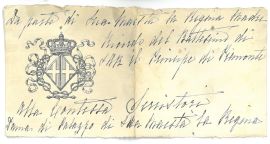 Da parte di Sua Maestà la Regina Madre
Ricordo del Battesimo di
S.A.R. il Principe di Piemonte
Alla Contessa Serristori
Dama di Palazzo di Sua Maestà la Regina